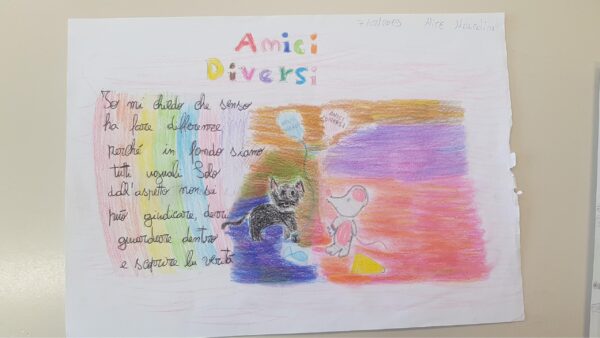 Amici
Diversi
Io mi chiedo che senso
ha fare differenze
perché in fondo siamo
tutti uguali Solo
dall'aspetto non se
può giudicare, devi
guardare dentro
e scoprire la verità